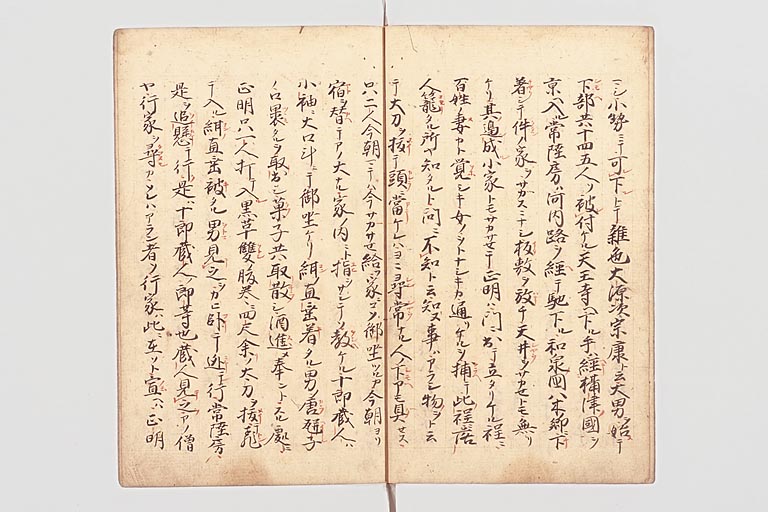 ミシ小勢ニテ可下トテ雑色大源次宗康ト云大男ヲ始テ
下部共十四五人ヲ被付ケル天王寺ヘ下ル手ハ経摂津國ヲ
京ヘ入ル常陸房ハ河内路ヲ経テ馳下ル和泉國八木郷下
着シテ件ノ家ヲサカスニナシ板敷ヲ放チ天井ヲサカセトモ無リ
ケリ其邊成小家トモサカサセテ正明ハ門ニ出テ立タリケル程ニ
百姓ノ妻カト覚シキ女ノヲトナシキカ通リケルヲ捕テ此程落
人籠タル所ヤ知タルト問ニ不知ト云知ヌ事ハアラシ物ヲト云
テ大刀ヲ抜テ頭ニ當ケレハヨニ尋常ケル人ノ下アマ具セス
只二人今朝ニテハ今サカサセ給ツ家ニヲハ御坐ツルカ今朝ヨリ
宿ヲ替テアノ大ナル家ノ内ニト指ヲサシテソ教ケル十郎蔵人ハ
小袖ニ大口計ニテ御坐ケリ紺直垂着タル男唐瓶子
ノ口裹タルヲ取出シ菓子共取散シ酒進メ奉ントスル處ニ
正明只一人打テ入黒革ノ腹巻ニ四尺余ノ大刀ヲ抜
テ入ル紺直垂被タル男見之ツカヒ臥テ逃テ行常陸房ハ
是ヲ追懸テ行是ハ十郎蔵人郎等也蔵人見之アノ僧
ヤ行家ヲ尋カ アラン者ヲ行家ハ此ニ在ソト宣ハ正明